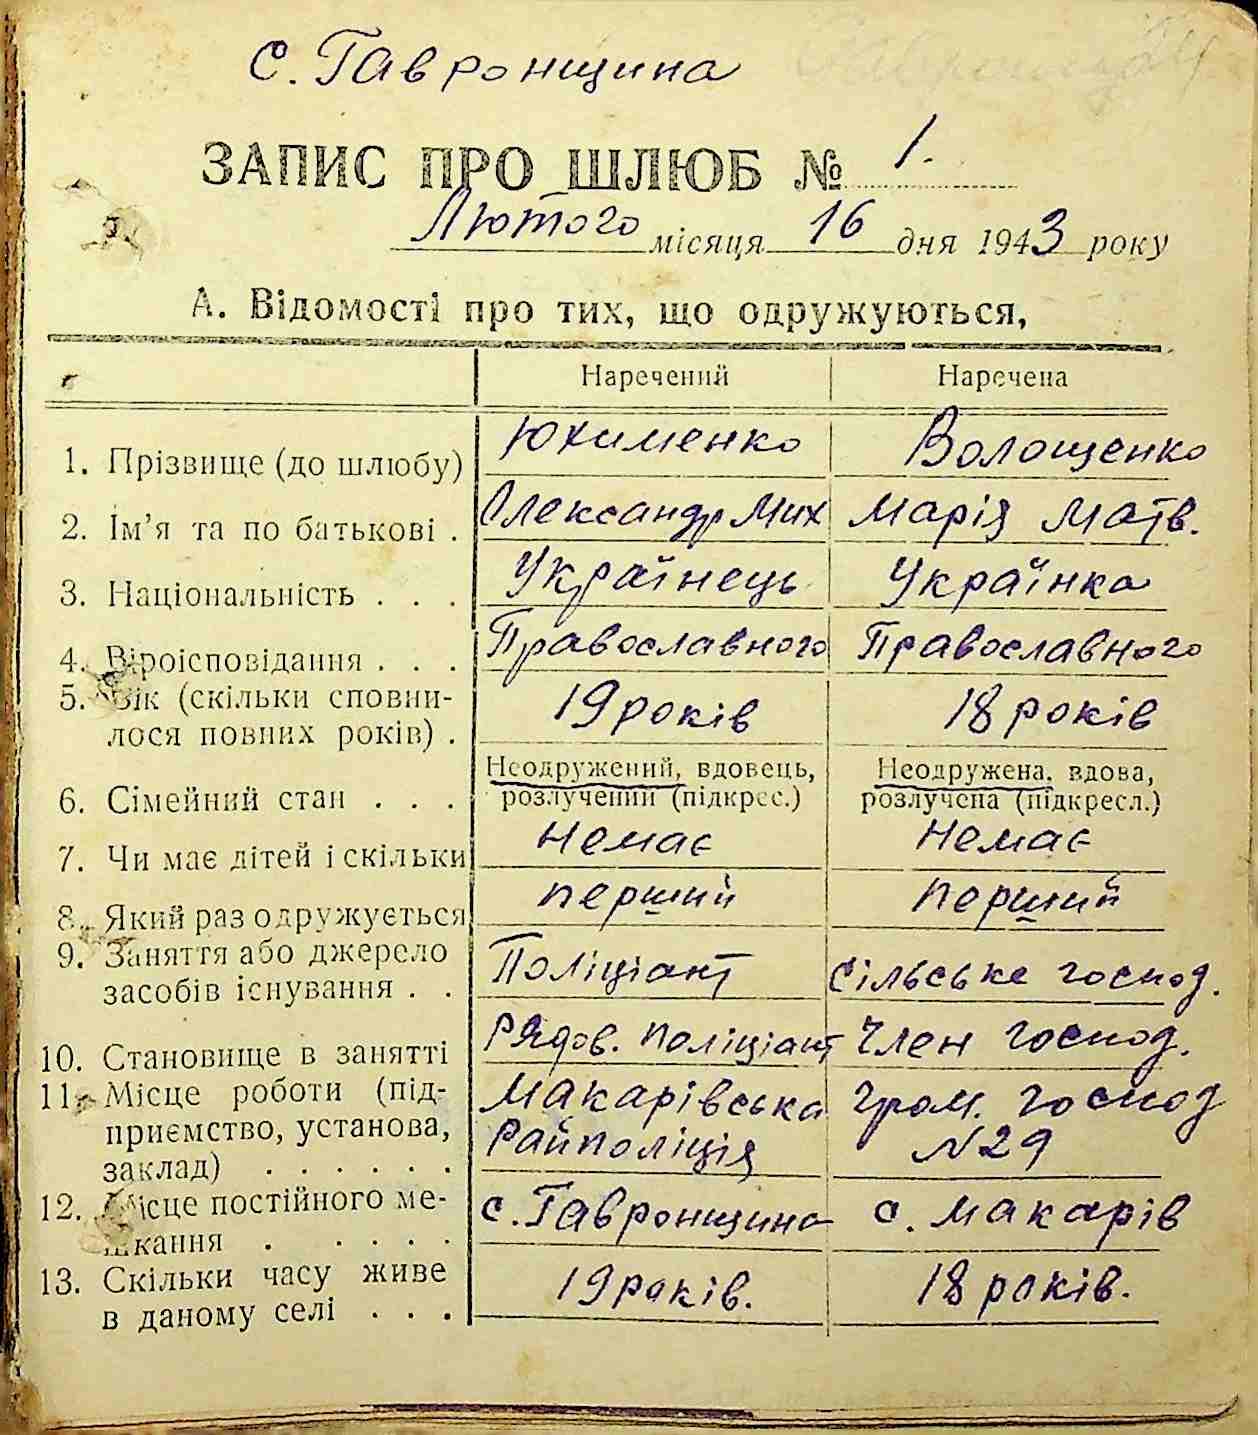 с. Гавронщина
ЗАПИС ПРО ШЛЮБ № 1.
Лютого місяця 16 дня 1943 року
А. Відомості про тих, що одружуються,
Наречений Наречена
1. Прізвище (до шлюбу) Юхименко Волощенко
2. Ім'я та по батькові . Олександр Мих Марія Матв.
3. Національність . . . Українець Українка
4. Віроісповідання . . . Православного Православного
5. Вік (скільки сповни-
лося повних років) . 19 років 18 років
6. Сімейний стан . . . Неодружений, вдовець, розлучений (підкрес.) Неодружена, вдова, розлучена (підкресл.)
7. Чи має дітей і скільки Немає Немає
8. Який раз одружується перший перший
9. Заняття або джерело
засобів існування . . Поліціант сільське господ.
10. Становище в занятті Рядов. поліціант Член господ.
11. Місце роботи (під- Макарівська Гром. господ
приємство, установа, Райполіція №29
заклад) . . . . . .
12. Місце постійного ме-
шкання . . . . . с. Гавронщина с. Макарів
13. Скільки часу живе
в даному селі . . . 19 років. 18 років.